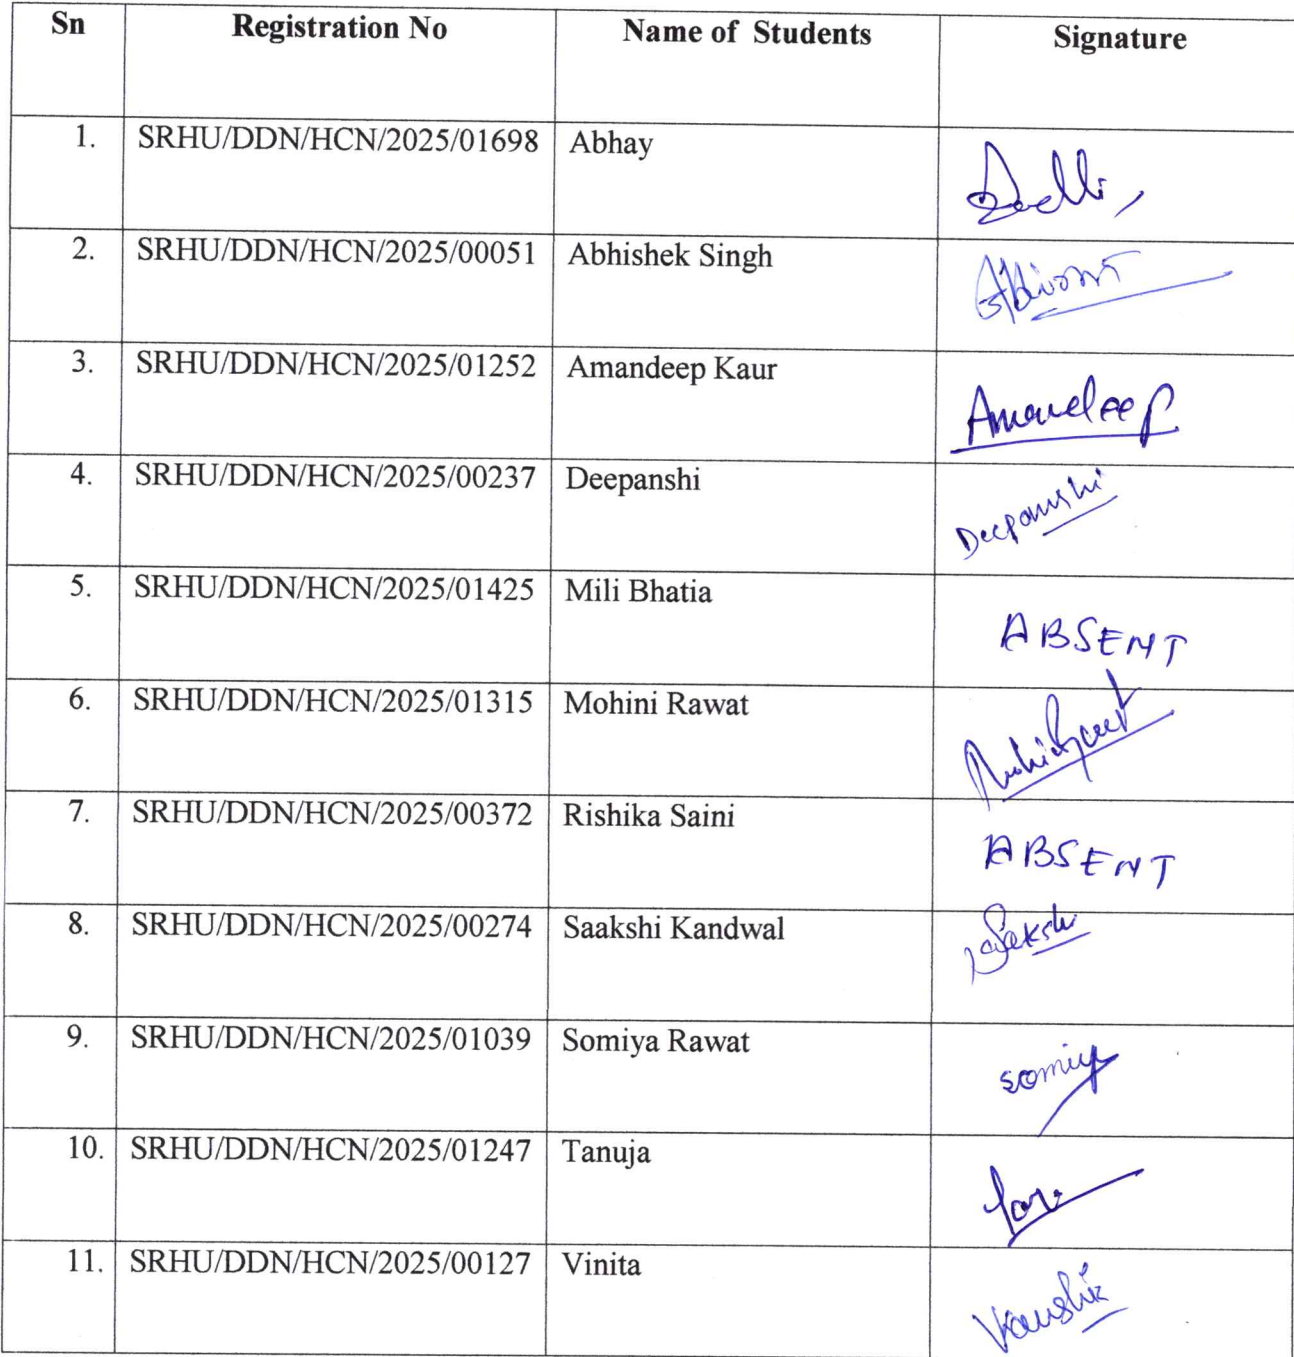 Sn Registration No Name of Students Signature
1. SRHU/DDN/HCN/2025/01698 Abhay
2. SRHU/DDN/HCN/2025/00051 Abhishek Singh
3. SRHU/DDN/HCN/2025/01252 Amandeep Kaur Amandeep
4. SRHU/DDN/HCN/2025/00237 Deepanshi Deepanshi
5. SRHU/DDN/HCN/2025/01425 Mili Bhatia ABSENT
6. SRHU/DDN/HCN/2025/01315 Mohini Rawat
7. SRHU/DDN/HCN/2025/00372 Rishika Saini ABSENT
8. SRHU/DDN/HCN/2025/00274 Saakshi Kandwal
9. SRHU/DDN/HCN/2025/01039 Somiya Rawat
10. SRHU/DDN/HCN/2025/01247 Tanuja
11. SRHU/DDN/HCN/2025/00127 Vinita